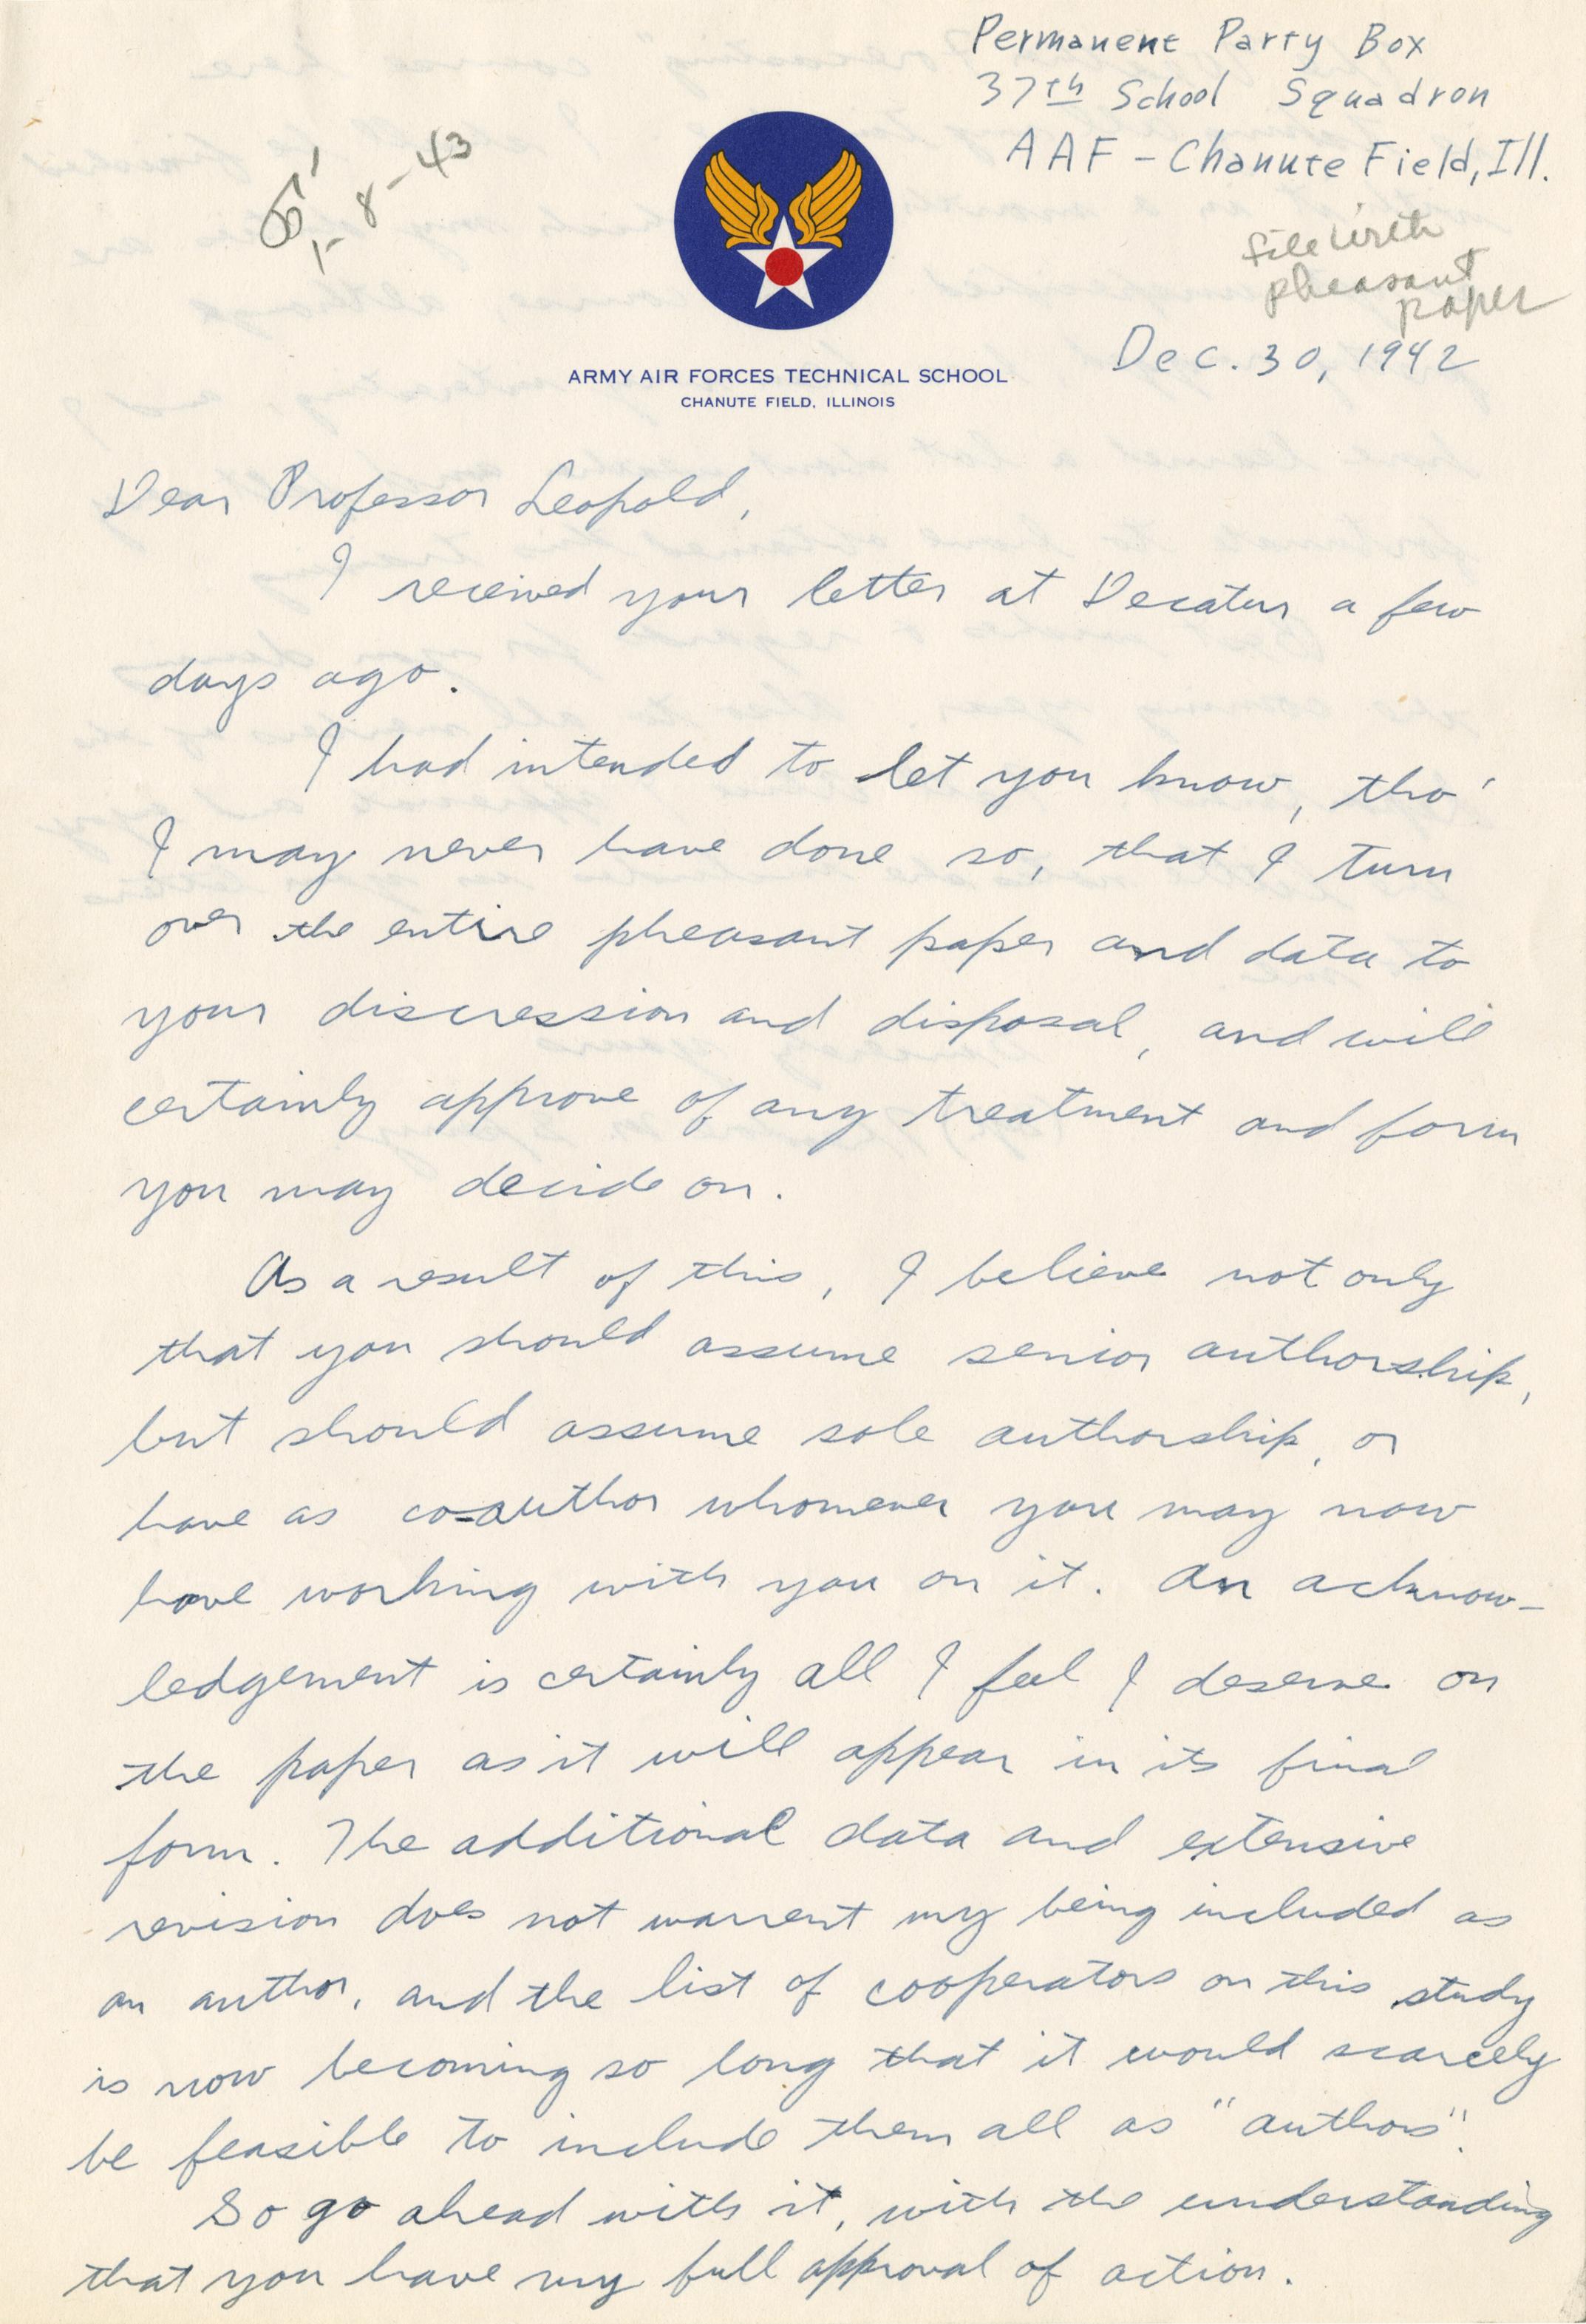 Permanent Party Box
37th School Squadron
AAF - Chanute Field, Ill.
1-8-43
file with
pheasant
paper
Dec. 30, 1942
ARMY AIR FORCES TECHNICAL SCHOOL
CHANUTE FIELD, ILLINOIS
Dear Professor Leopold,
I received your letter at Decatur a few
days ago.
I had intended to let you know, tho'
I may never have done so, that I turn
over the entire pheasant paper and data to
your discression and disposal, and will
certainly approve of any treatment and form
you may decide on.
As a result of this, I believe not only
that you should assume senior authorship,
but should assume sole authorship, or
have as co-author whomever you may now
have working with you on it. An acknow-
ledgement is certainly all I feel I deserve on
the paper as it will appear in its final
form. The additional data and extensive
revision does not warrent my being included as
an author, and the list of cooperators on this study
is now becoming so long that it would scarcely
be feasible to include them all as "authors".
So go ahead with it, with the understanding
that you have my full approval of action.